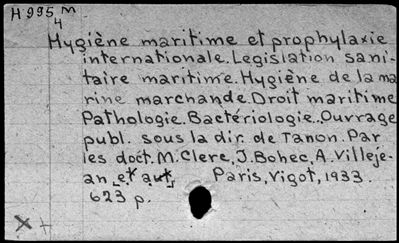 H 995 M
4
Hygiène maritime et prophylaxie
internationale. Legislation sani-
taire maritime. Hygiène de la ma
rine marchande. Droit maritime
Pathologie. Bactériologie.. Ouvrage
publ. sous la dir. de Tanon. Par
les doct. M. Clerc, J. Bohec, A. Villeje-
an et aut. Paris, Vigot, 1933.
623 p.
X +